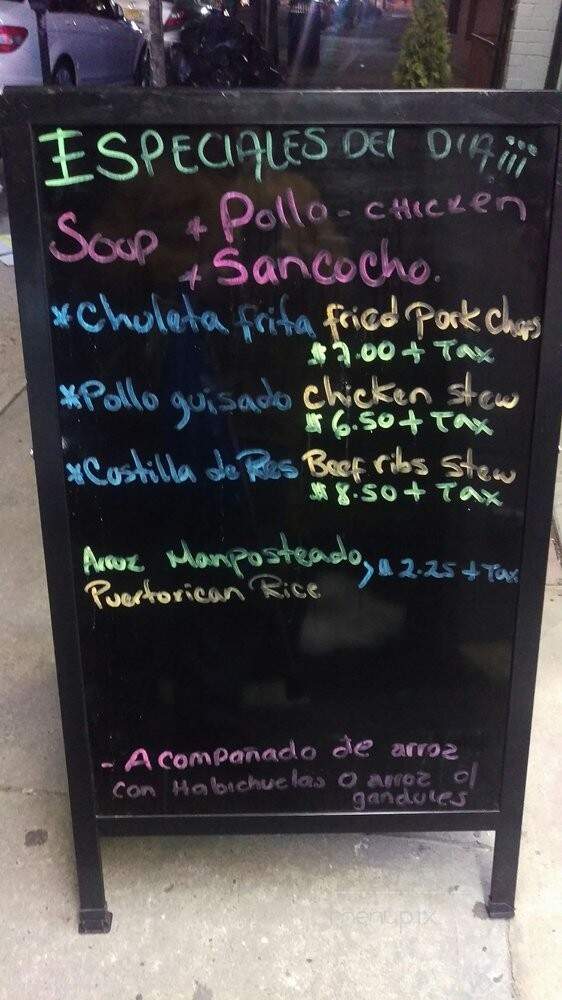 ESPECIALES DEl DIA¡¡¡
Soup * Pollo - chicken
* Sancocho.
*Chuleta frita fried Pork Chops
$7.00 + Tax
*Pollo guisado chicken stew
$6.50 + Tax
*Costilla de Res Beef ribs stew
$8.50 + Tax
Arroz Mamposteado, > $2.25 + Tax
Puertorican Rice
- Acompañado de arroz
con Habichuelas o arroz c/
gandules
menupix